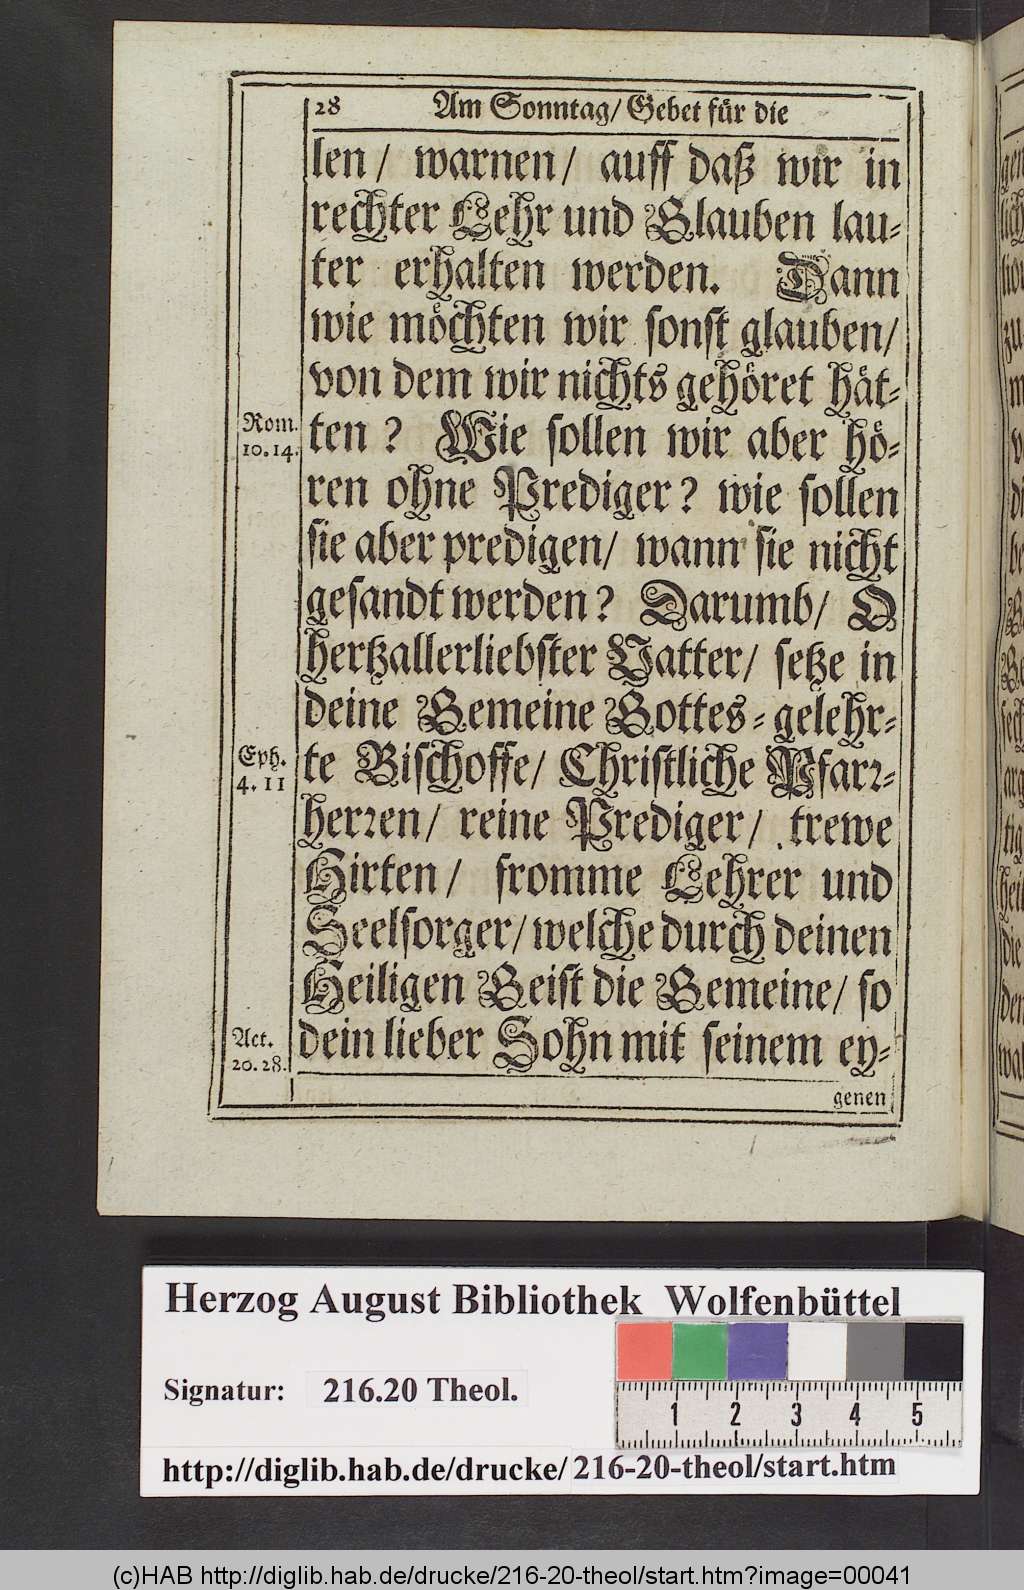 28 Am Sonntag/ Gebet für die
len/ warnen/ auff daß wir in
rechter Lehr und Glauben lau-
ter erhalten werden. Dann
wie möchten wir sonst glauben/
von dem wir nichts gehöret hät-
Rom.
10.14.
ten? Wie sollen wir aber hö-
ren ohne Prediger? wie sollen
sie aber predigen/ wann sie nicht
gesandt werden? Darumb/ O
hertzallerliebster Vatter/ setze in
deine Gemeine Gottes-gelehr-
Eph.
4. 11
te Bischoffe/ Christliche Pfarr-
herren/ reine Prediger/ trewe
Hirten/ fromme Lehrer und
Seelsorger/ welche durch deinen
Heiligen Geist die Gemeine/ so
Act.
20.28.
dein lieber Sohn mit seinem ey-
genen
Herzog August Bibliothek Wolfenbüttel
Signatur: 216.20 Theol.
1 2 3 4 5
http://diglib.hab.de/drucke/216-20-theol/start.htm
(c)HAB http://diglib.hab.de/drucke/216-20-theol/start.htm?image=00041